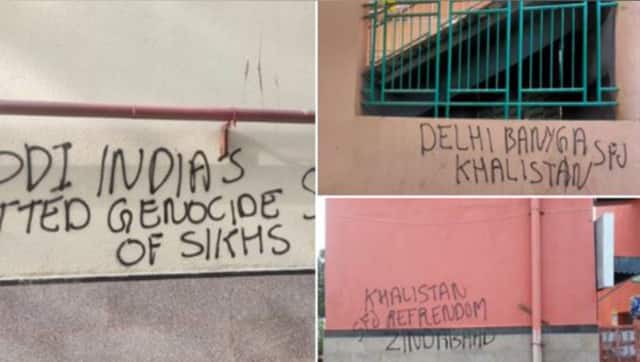 ODI INDIA'S
TTED GENOCIDE S
OF SIKHS
DELHI BANYGA SFJ
KHALISTAN
KHALISTAN
REFRENDOM
ZINDABAAD